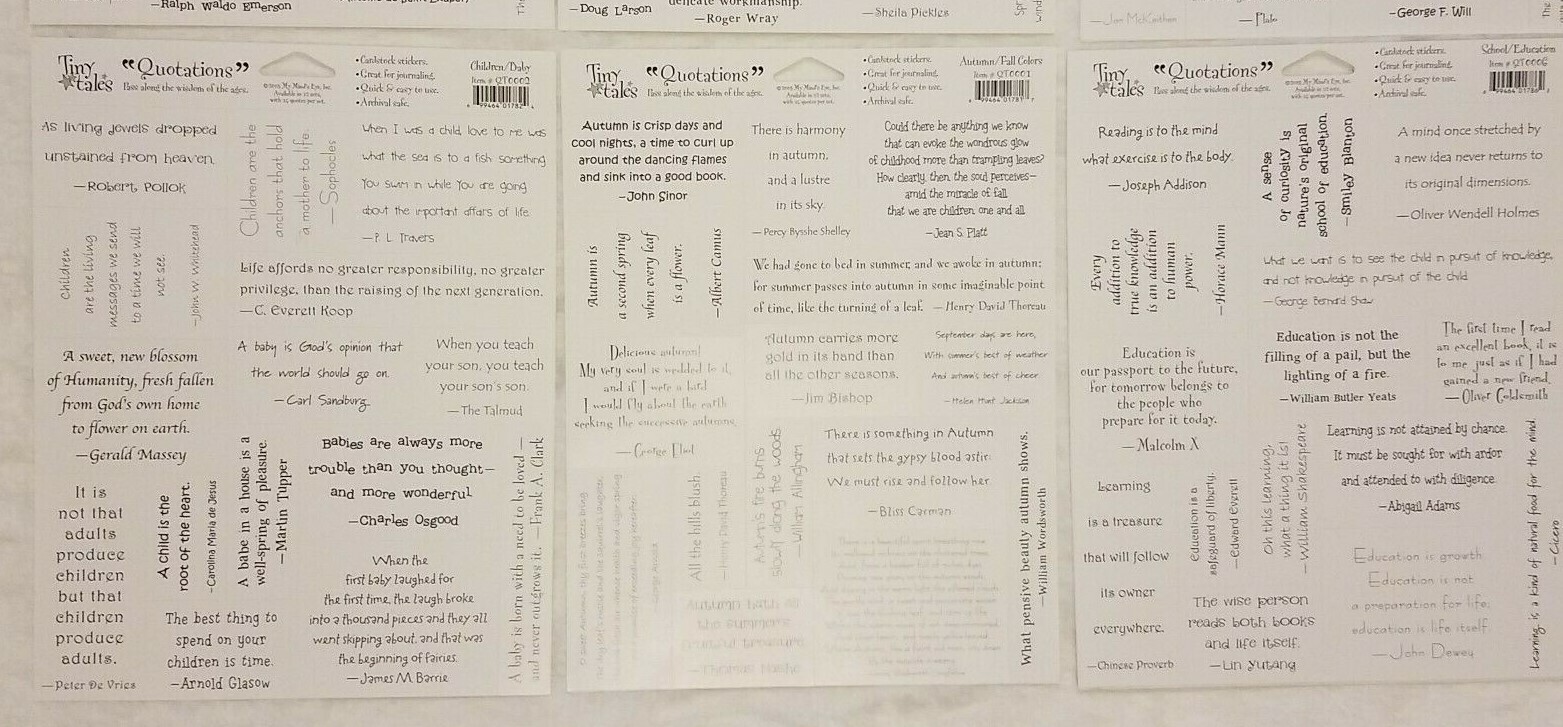 —Ralph Waldo Emerson
—Doug Larson
delicate workmanship.
—Roger Wray
—Sheila Pickles
—Plato
—George F. Will
Tiny tales
"Quotations"
Pass along the wisdom of the ages.
©2003 My Mind's Eye, Inc.
Available in 12 sets,
with 25 quotes per set.
•Cardstock stickers.
•Great for journaling.
•Quick & easy to use.
•Archival safe.
Children/Baby
Item # QT0002
As living jewels dropped
unstained from heaven.
—Robert Pollok
Children are the
anchors that hold
a mother to life.
—Sophocles
When I was a child, love to me was
what the sea is to a fish: something
you swim in while you are going
about the important affairs of life.
—P. L. Travers
Children
are the living
messages we send
to a time we will
not see.
—John W. Whitehead
Life affords no greater responsibility, no greater
privilege, than the raising of the next generation.
—C. Everett Koop
A sweet, new blossom
of Humanity, fresh fallen
from God's own home
to flower on earth.
—Gerald Massey
A baby is God's opinion that
the world should go on.
—Carl Sandburg
When you teach
your son, you teach
your son's son.
—The Talmud
It is
not that
adults
produce
children
but that
children
produce
adults.
—Peter De Vries
A child is the
root of the heart.
—Carolina Maria de Jesus
A babe in a house is a
well-spring of pleasure.
—Martin Tupper
Babies are always more
trouble than you thought—
and more wonderful
—Charles Osgood
The best thing to
spend on your
children is time.
—Arnold Glasow
When the
first baby laughed for
the first time, the laugh broke
into a thousand pieces and they all
went skipping about, and that was
the beginning of fairies.
—James M. Barrie
A baby is born with a need to be loved —
and never outgrows it. —Frank A. Clark
Tiny tales
"Quotations"
Pass along the wisdom of the ages.
©2003 My Mind's Eye, Inc.
Available in 12 sets,
with 25 quotes per set.
•Cardstock stickers.
•Great for journaling.
•Quick & easy to use.
•Archival safe.
Autumn/Fall Colors
Item # QT0001
Autumn is crisp days and
cool nights, a time to curl up
around the dancing flames
and sink into a good book.
—John Sinor
There is harmony
in autumn,
and a lustre
in its sky.
—Percy Bysshe Shelley
Could there be anything we know
that can evoke the wondrous glow
of childhood more than trampling leaves?
How clearly, then, the soul perceives—
amid the miracle of fall
that we are children, one and all.
—Jean S. Platt
Autumn is
a second spring
when every leaf
is a flower.
—Albert Camus
We had gone to bed in summer, and we awoke in autumn;
for summer passes into autumn in some imaginable point
of time, like the turning of a leaf. —Henry David Thoreau
Delicious autumn!
My very soul is wedded to it,
and if I were a bird
I would fly about the earth
seeking the successive autumns.
—George Eliot
Autumn carries more
gold in its hand than
all the other seasons.
—Jim Bishop
September days are here,
With summer's best of weather
And autumn's best of cheer.
—Helen Hunt Jackson
All the hills blush
—Henry David Thoreau
Autumn's fire burns
slowly along the woods
—William Allingham
There is something in Autumn
that sets the gypsy blood astir.
We must rise and follow her.
—Bliss Carman
Autumn hath all
the summer's
fruitful treasure
—Thomas Nashe
What pensive beauty autumn shows.
—William Wordsworth
Tiny tales
"Quotations"
Pass along the wisdom of the ages.
©2003 My Mind's Eye, Inc.
Available in 12 sets,
with 25 quotes per set.
•Cardstock stickers.
•Great for journaling.
•Quick & easy to use.
•Archival safe.
School/Education
Item # QT0006
Reading is to the mind
what exercise is to the body.
—Joseph Addison
A sense
of curiosity is
nature's original
school of education.
—Smiley Blanton
A mind once stretched by
a new idea never returns to
its original dimensions.
—Oliver Wendell Holmes
Every
addition to
true knowledge
is an addition
to human
power.
—Horace Mann
What we want is to see the child in pursuit of knowledge,
and not knowledge in pursuit of the child.
—George Bernard Shaw
Education is
our passport to the future,
for tomorrow belongs to
the people who
prepare for it today.
—Malcolm X
Education is not the
filling of a pail, but the
lighting of a fire.
—William Butler Yeats
The first time I read
an excellent book, it is
to me just as if I had
gained a new friend.
—Oliver Goldsmith
Learning
is a treasure
that will follow
its owner
everywhere.
—Chinese Proverb
Education is a
safeguard of liberty.
—Edward Everett
Oh this learning,
what a thing it is!
—William Shakespeare
Learning is not attained by chance.
It must be sought for with ardor
and attended to with diligence.
—Abigail Adams
The wise person
reads both books
and life itself.
—Lin Yutang
Education is growth.
Education is not
a preparation for life;
education is life itself.
—John Dewey
Learning is a kind of natural food for the mind.
—Cicero